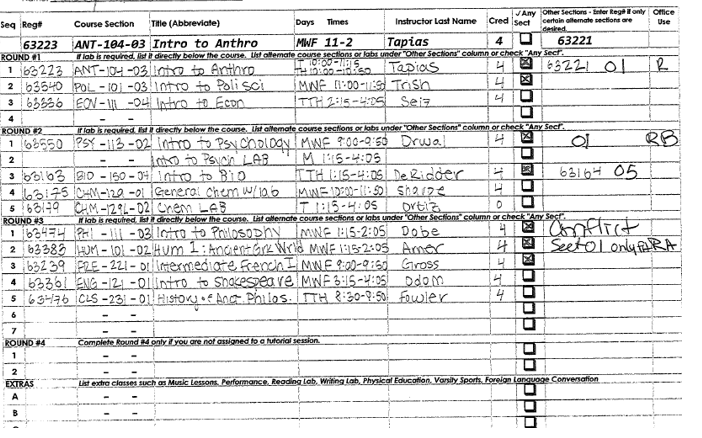 Seq Reg# Course Section Title (Abbreviate) Days Times Instructor Last Name Cred √Any Sect Other Sections - Enter Reg# if only certain alternate sections are desired. Office Use
63223 ANT-104-03 Intro to Anthro MWF 11-2 Tapias 4 63221
ROUND #1 If lab is required, list it directly below the course. List alternate course sections or labs under "Other Sections" column or check "Any Sect".
1 63223 ANT-104-03 Intro to Anthro T 10:00-11:15 TH 10:00-10:50 Tapias 4 63221 01 R
2 63540 POL-101-03 Intro to Poli sci MWF 11:00-11:50 Trish 4
3 63336 ECN-111-04 Intro to Econ TTH 2:15-4:05 Seiz 4
4 - -
ROUND #2 If lab is required, list it directly below the course. List alternate course sections or labs under "Other Sections" column or check "Any Sect".
1 63550 PSY-113-02 Intro to Psychology MWF 9:00-9:50 Drwal 4 01 RB
2 - - Intro to Psych LAB M 1:15-4:05
3 63163 BIO-150-04 Intro to Bio TTH 1:15-4:05 DeRidder 4 63164 05
4 63175 CHM-129-01 General Chem w/lab MWF 10:00-11:50 Sharpe 4
5 63179 CHM-129L-02 Chem LAB T 1:15-4:05 Ortiz 0
ROUND #3 If lab is required, list it directly below the course. List alternate course sections or labs under "Other Sections" column or check "Any Sect".
1 63474 PHI-111-03 Intro to Philosophy MWF 1:15-2:05 Dobe 4 Conflict
2 63383 HUM-101-02 Hum I: Ancient Grk Wrld MWF 1:15-2:05 Amer 4 Sect 01 only RA
3 63239 FRE-221-01 Intermediate French I MWF 9:00-9:50 Gross 4
4 63361 ENG-121-01 Intro to Shakespeare MWF 3:15-4:05 Odom 4
5 63476 CLS-231-01 History of Anct Philos. TTH 8:30-9:50 Fowler 4
6 - -
7 - -
ROUND #4 Complete Round #4 only if you are not assigned to a tutorial session.
1 - -
2 - -
EXTRAS List extra classes such as Music Lessons, Performance, Reading Lab, Writing Lab, Physical Education, Varsity Sports, Foreign Language Conversation
A - -
B - -